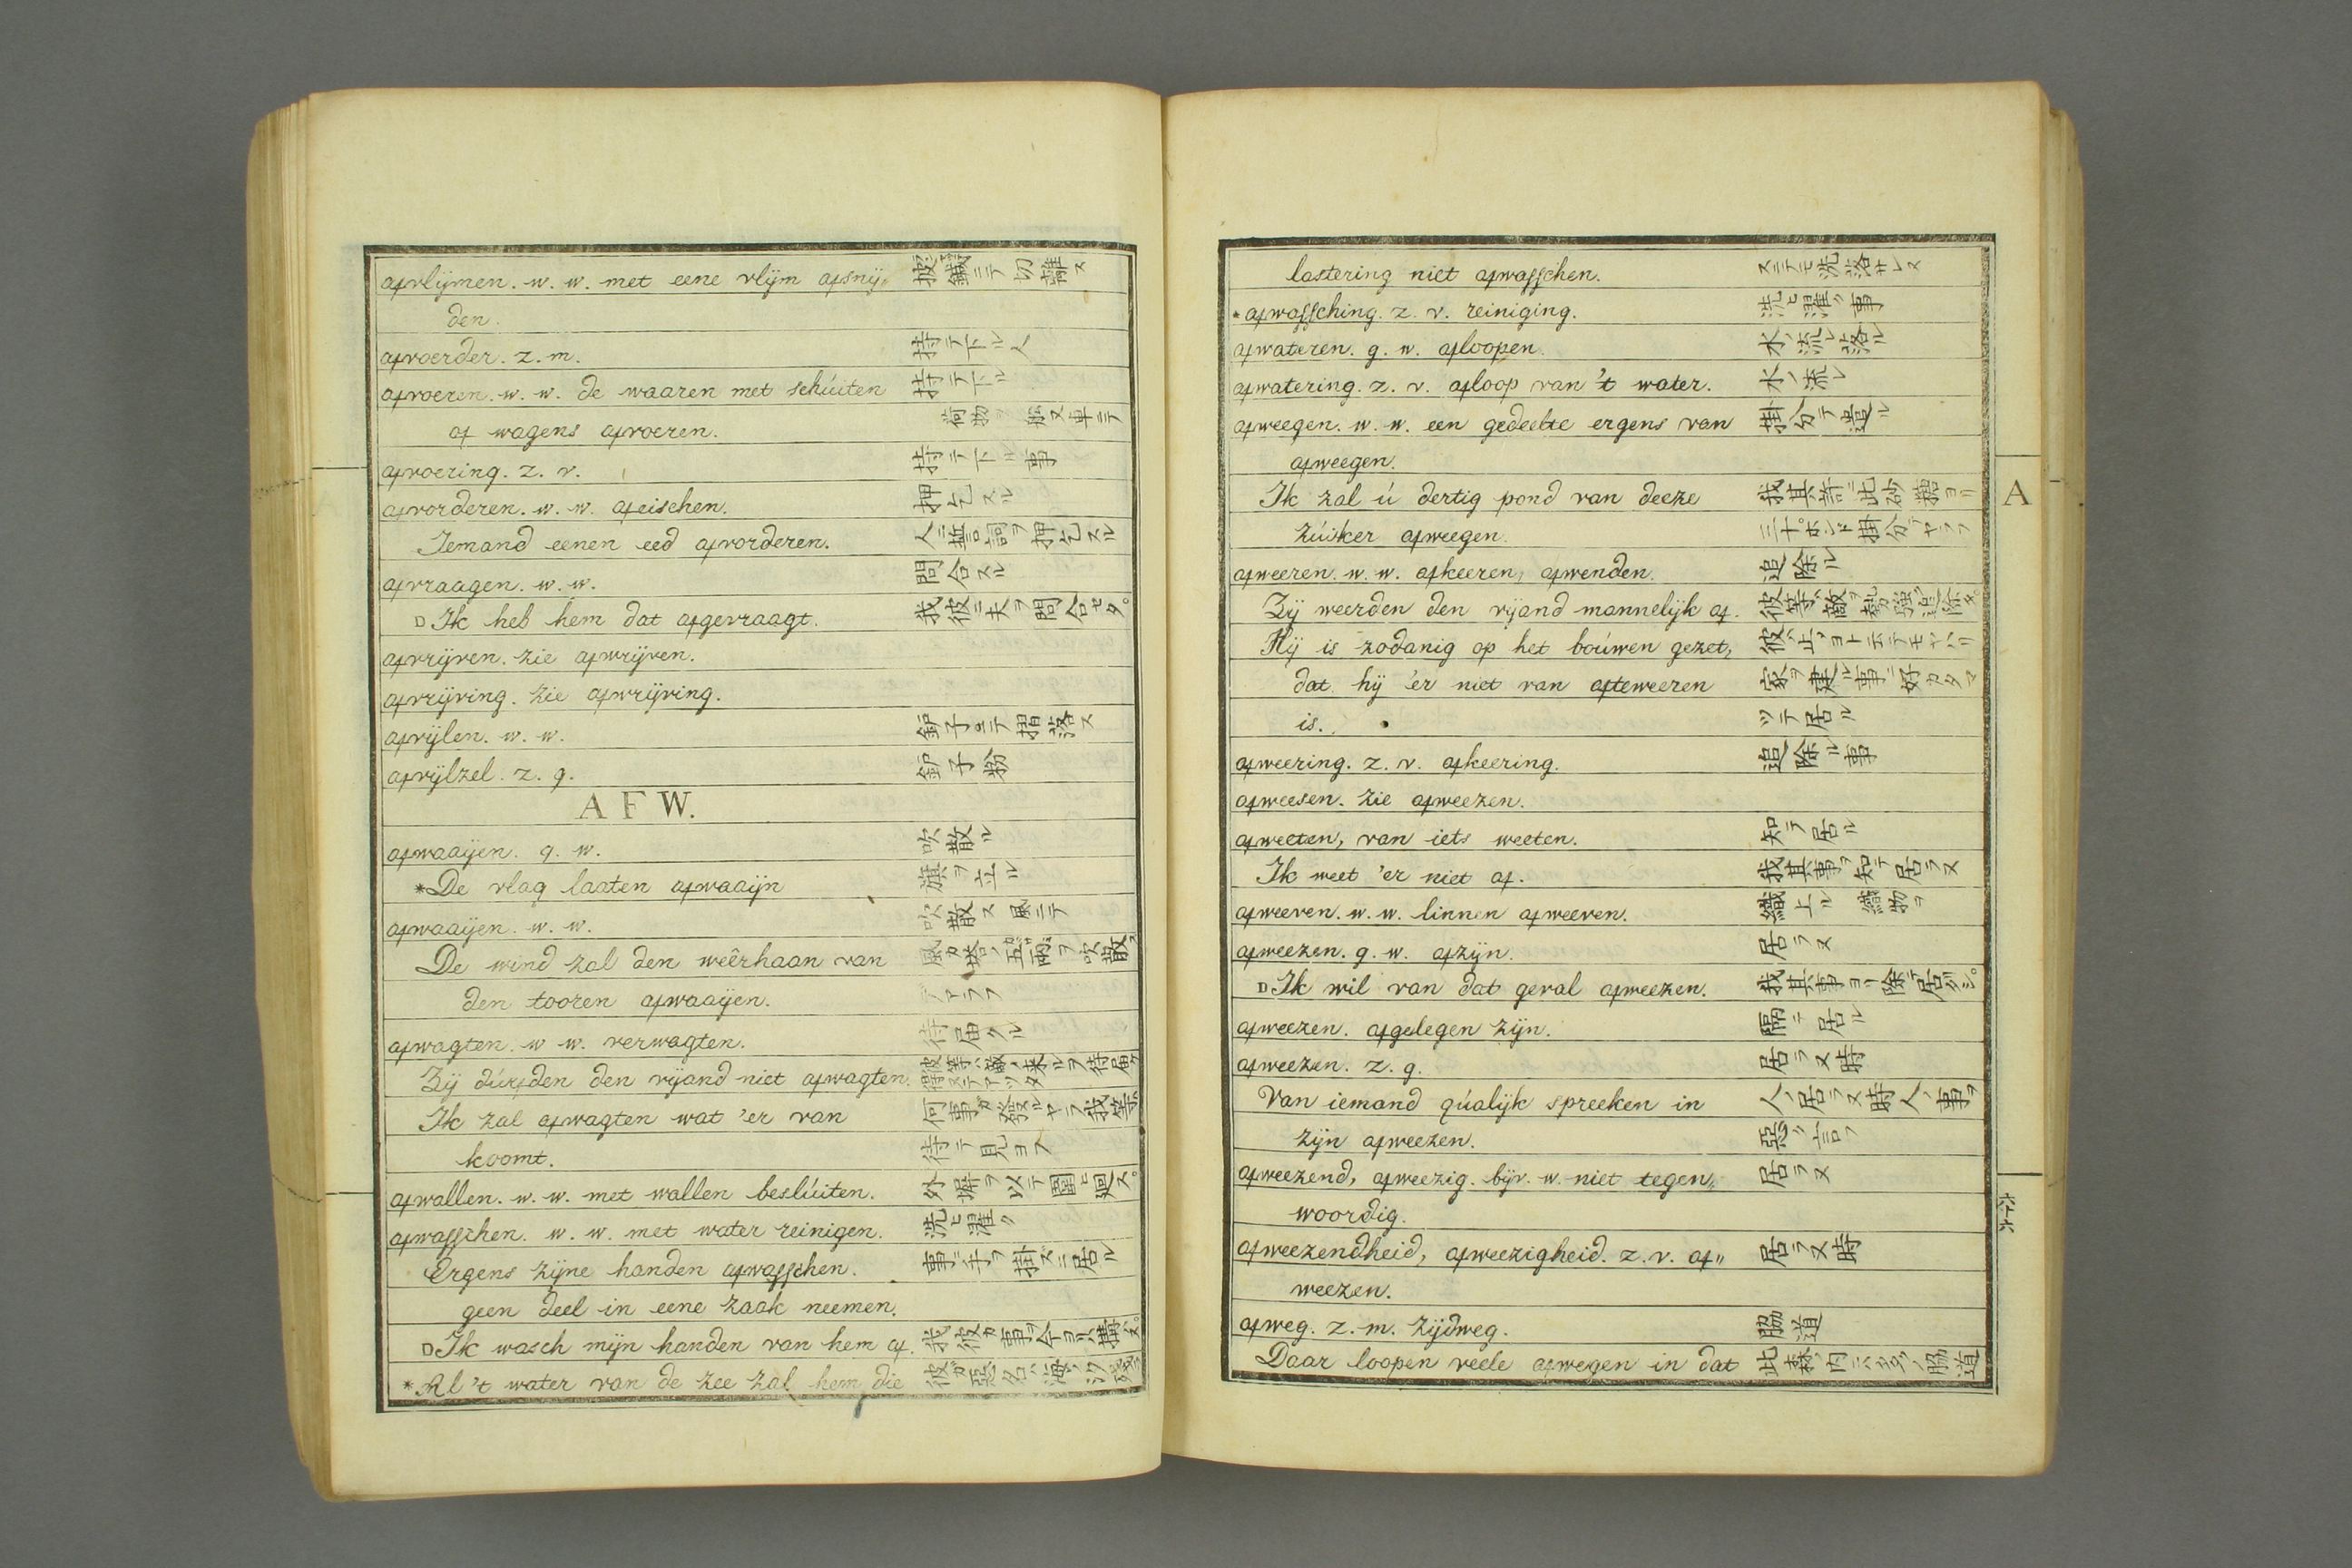 afvlijmen. w. w. met eene vlijm afsnij„ 披鍼ニテ切離ス
den.
afvoerder. z. m. 持テ下ル人
afvoeren. w. w. de waaren met schúiten 持テ下ル
of wagens afvoeren. 荷物ヲ船又車ニテ
afvoering. z. v. 持テ下ル事
afvorderen. w. w. afeischen. 押乞スル
Iemand eenen eed afvorderen. 人ニ誓詞ヲ押乞スル
afvraagen. w. w. 問合スル
D Ik heb hem dat afgevraagt. 我彼ニ夫ヲ問合セタ。
afvrijven. zie afwrijven.
afvrijving. zie afwrijving.
afvijlen. w. w. 鈩子ニテ摺落ス
afvijlzel. z. g. 鈩子粉
A F W.
afwaaijen. g. w. 吹散ル
*De vlag laaten afwaaijn 旗ヲ立ル
afwaaijen. w. w. 吹散ス風ニテ
De wind zal den weêrhaan van 風カ塔ノ五両ヲ吹散
den tooren afwaaijen. テアラフ
afwagten. w w. verwagten. 待届クル
Zij dúrfden den vijand niet afwagten. 彼等ハ敵ノ来ルヲ待届ケ得ヌテアツタ
Ik zal afwagten wat 'er van 何事カ發ルヤラ我等
koomt. 待テ見ヨフ
afwallen. w. w. met wallen beslúiten. 外塀ヲ以テ圍ヒ廻ス。
afwasschen. w. w. met water reinigen. 洗ヒ濯ク
Ergens zijne handen afwasschen. 事ニ手ヲ掛ズニ居ル
geen deel in eene zaak neemen.
D Ik wasch mijn handen van hem af. 我彼カ事ハ今ヨリ構ハヌ。
*Al 't water van de zee zal hem die 彼カ惡名ハ海ノ
lastering niet afwasschen. ステモ洗落サレヌ
*afwassching. z. v. reiniging. 洗ヒ濯ク事
afwateren. g. w. afloopen. 水ノ流レ落ル
afwatering. z. v. afloop van 't water. 水ノ流レ
afweegen. w. w. een gedeelte ergens van 掛分テ遣ル
afweegen.
Ik zal ú dertig pond van deeze 我其許ニ此砂糖ヨリ
zúiker afweegen. 三十ポンド掛分ヤラフ
afweeren. w. w. afkeeren, afwenden. 追除ル
Zij weerden den vijand mannelijk af. 彼等ハ敵ヲ勢強ク追除タ
Hij is zodanig op het boúwen gezet, 彼ハ止ヨト云テモヤハリ
dat hij 'er niet van afteweeren 家ヲ建ル事ニ好カタマ
is. ツテ居ル
afweering. z. v. afkeering. 追除ル事
afweesen. zie afweezen.
afweeten, van iets weeten. 知テ居ル
Ik weet 'er niet af. 我其事ヲ知テ居ラヌ
afweeven. w. w. linnen afweeven. 織上ル 織物ヲ
afweezen. g. w. afzijn. 居ラヌ
D Ik wil van dat geval afweezen. 我其事ヨリ除テ居タシ。
afweezen. afgelegen zijn. 隔テ居ル
afweezen. z. g. 居ラヌ時
Van iemand qúalijk spreeken in 人ノ居ラヌ時人ノ事ヲ
zijn afweezen. 惡ク言フ
afweezend, afweezig. bijv. w. niet tegen„ 居ラヌ
woordig.
afweezendheid, afweezigheid. z. v. af„ 居ラヌ時
weezen.
afweg. z. m. zijdweg. 脇道
Daar loopen veele afwegen in dat 此森ノ内ニハ多クノ脇道
A
六十六